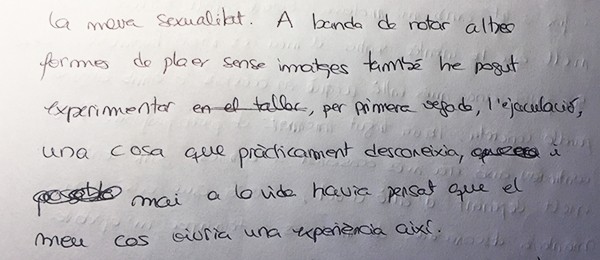 la meva sexualitat. A banda de notar altres
formes de plaer sense imatges també he pogut
experimentar en el taller, per primera vegada, l'ejaculació,
una cosa que pràcticament desconeixia, i
mai a la vida havia pensat que el
meu cos viuria una experiència així.